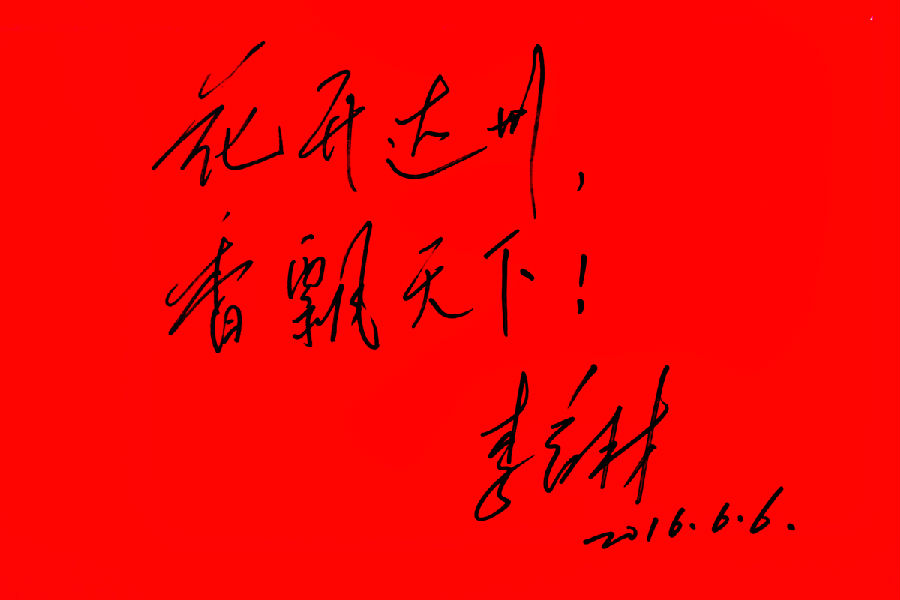 花开达州,
香飘天下!
李
2016.6.6.